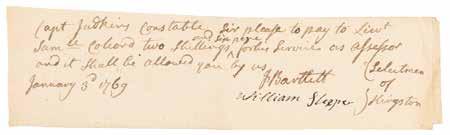 Capt Judkins Constable, Sir please to pay to Lieut
and six pence
Samll Colcord two Shillings for his Service as assessor
and it Shall be allowed you by us
January 3d 1769
J Bartlett
William Sleeper
Selectmen
of
Kingston